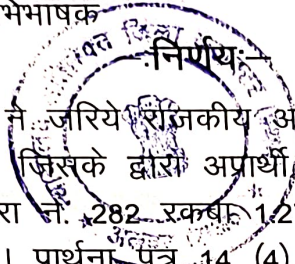 भिभाषक
-:निर्णय:-
ने जरिये राजकीय अ
जिसके द्वारा अप्रार्थी
रा नं. 282 रकबा 1.2
। प्रार्थना पत्र 14 (4)